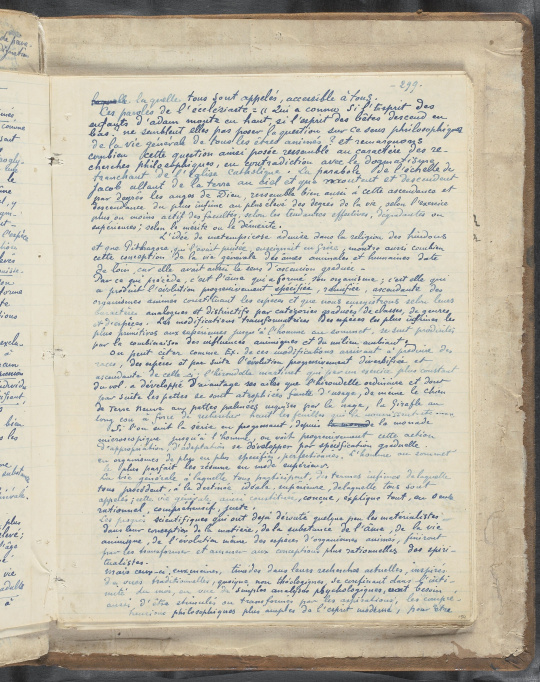 - 299 -
laquelle tous sont appelés, accessible à tous.
Ces paroles de l'écclésiaste = « Qui a connu si l'esprit des
enfants d'adam monte en haut, si l'esprit des bêtes descend en
bas ne semblent elles pas poser la question sur ce sens philosophique
de la vie générale de tous les êtres animés ? et remarquons
combien cette question ainsi posée ressemble au caractère des re-
cherches philosophiques, en contradiction avec le dogmatisme
tranchant de l'Eglise catholique. La parabole de l'échelle de
Jacob allant de la terre au ciel et que montent et descendent
par degrés les anges de Dieu, ressemble bien aussi à cette ascendance et
descendance du plus infime au plus élevé des degrés de la vie, selon l'exercice
plus ou moins actif des facultés, selon les tendances affectives, dégradantes ou
supérieures, selon le mérite ou le démérite.
L'idée de métempsycose admise dans la religion des hindous
et que Pithagore, qui l'avait puisée, enseignait en Grèce, montre aussi combien
cette conception de la vie générale des âmes animales et humaines date
de loin, car elle avait aussi le sens d'ascension graduée.
Par ce qui précède, c'est l'âme qui a formé son organisme, c'est elle qui
a produit l'évolution progressivement spécifiée, ramifiée, ascendante des
organismes animés constituant les espèces et que nous enregistrons selon leurs
caractères analogues et distinctifs par catégories graduées de classes, de genres
et d'espèces. Les modifications transformatrices des espèces les plus infimes, les
plus primitives aux supérieures jusqu'à l'homme au sommet, se sont produites
par la combinaison des influences animiques et du milieu ambiant.
On peut citer comme Ex. de ces modifications arrivant à produire des
races, des espèces et par suite l'évolution progressivement diversifiée et
ascendante de celles-ci, l'hirondelle martinet qui par un exercice plus constant
du vol a développé d'avantage ses ailes que l'hirondelle ordinaire et dont
par suite les pattes se sont atrophiées faute d'usage, de même le chien
de Terre Neuve aux pattes palmées par la nage, la Girafe au
long cou à force de chercher haut les feuilles qui la nourrissent
Si l'on suit la série en progressant, depuis la monade
microscopique jusqu'à l'homme, on voit progressivement cette action
d'appropriation, d'adaptation se développer par spécification graduelle
en organismes de plus en plus spécifiés, perfectionnés, l'homme au sommet
le plus parfait les résume en mode supérieur.
La vie générale à laquelle tous participent, des termes infimes de laquelle
tous procèdent, à la destinée idéale, supérieure, de laquelle tous sont
appelés; cette vie générale, ainsi constituée, conçue, explique tout, au sens
rationnel, compréhensif, juste.
Les progrès scientifiques qui ont déjà dérouté quelque peu les matérialistes
dans leur conception de la matière, de la substance de l'âme, de la vie
animique, de l'évolution même des espèces d'organismes animés, finiront
par les transformer et amener aux conceptions plus rationnelles des spiri-
tualistes.
Mais ceux-ci, eux-mêmes, timides dans leurs recherches actuelles, inspirés
du sens traditionnel, quoique non théologiques, se confinant dans l'inti-
mité du moi, en vue de simples analyses psychologiques, ont besoin
aussi d'être stimulés ou transformés par les aspirations, les compré-
hensions philosophiques plus amples de l'esprit moderne, pour être